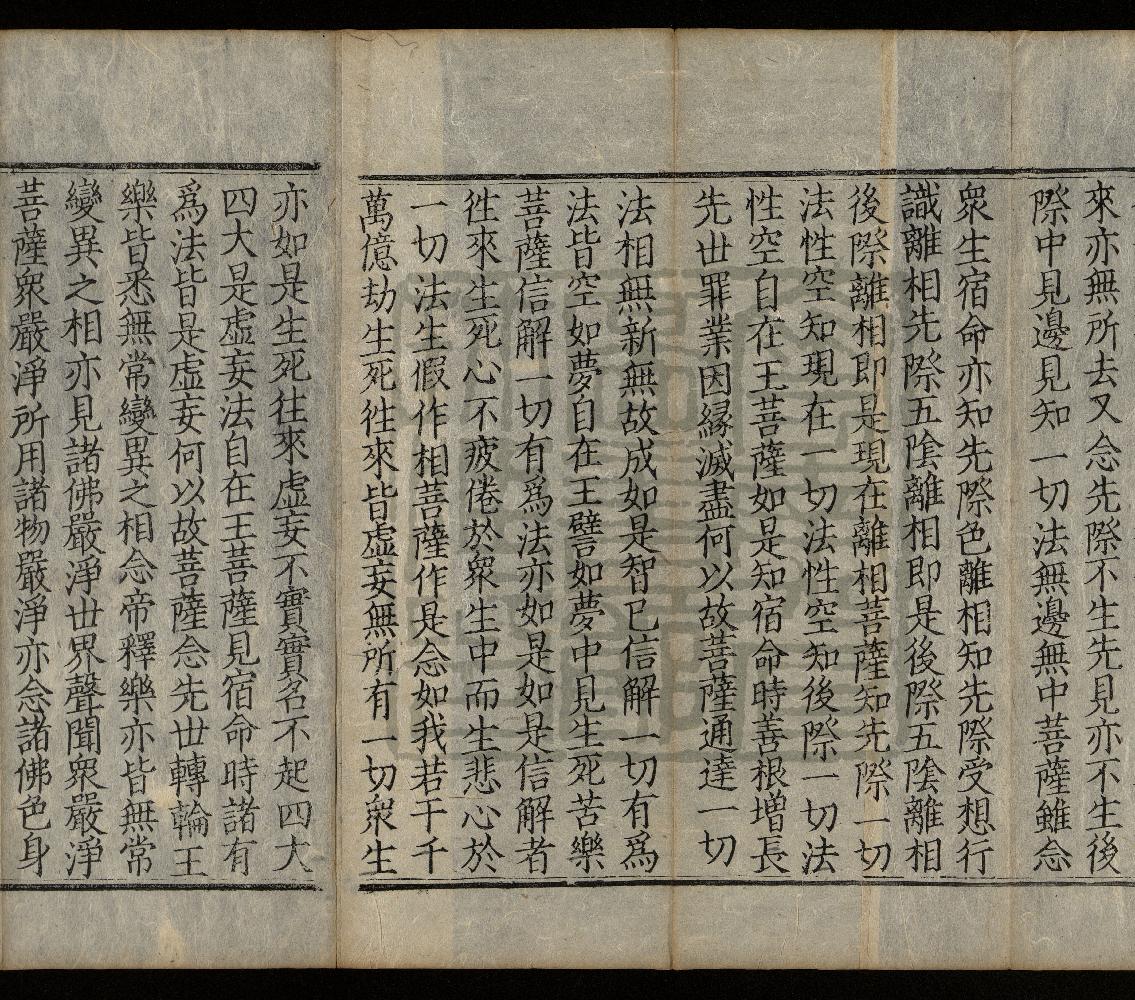 來亦無所去又念先際不生先見亦不生後
際中見邊見知一切法無邊無中菩薩雖念
衆生宿命亦知先際色離相知先際受想行
識離相先際五陰離相即是後際五陰離相
後際離相即是現在離相菩薩知先際一切
法性空知現在一切法性空知後際一切法
性空自在王菩薩如是知宿命時善根增長
先世罪業因緣滅盡何以故菩薩通達一切
法相無新無故成如是智已信解一切有爲
法皆空如夢自在王譬如夢中見生死苦樂
菩薩信解一切有爲法亦如是如是信解者
徃來生死心不疲倦於衆生中而生悲心於
一切法生假作相菩薩作是念如我若干千
萬億劫生死徃來皆虛妄無所有一切衆生
亦如是生死往來虛妄不實實名不起四大
四大是虛妄法自在王菩薩見宿命時諸有
爲法皆是虛妄何以故菩薩念先世轉輪王
樂皆悉無常變異之相念帝釋樂亦皆無常
變異之相亦見諸佛嚴淨世界聲聞衆嚴淨
菩薩衆嚴淨所用諸物嚴淨亦念諸佛色身